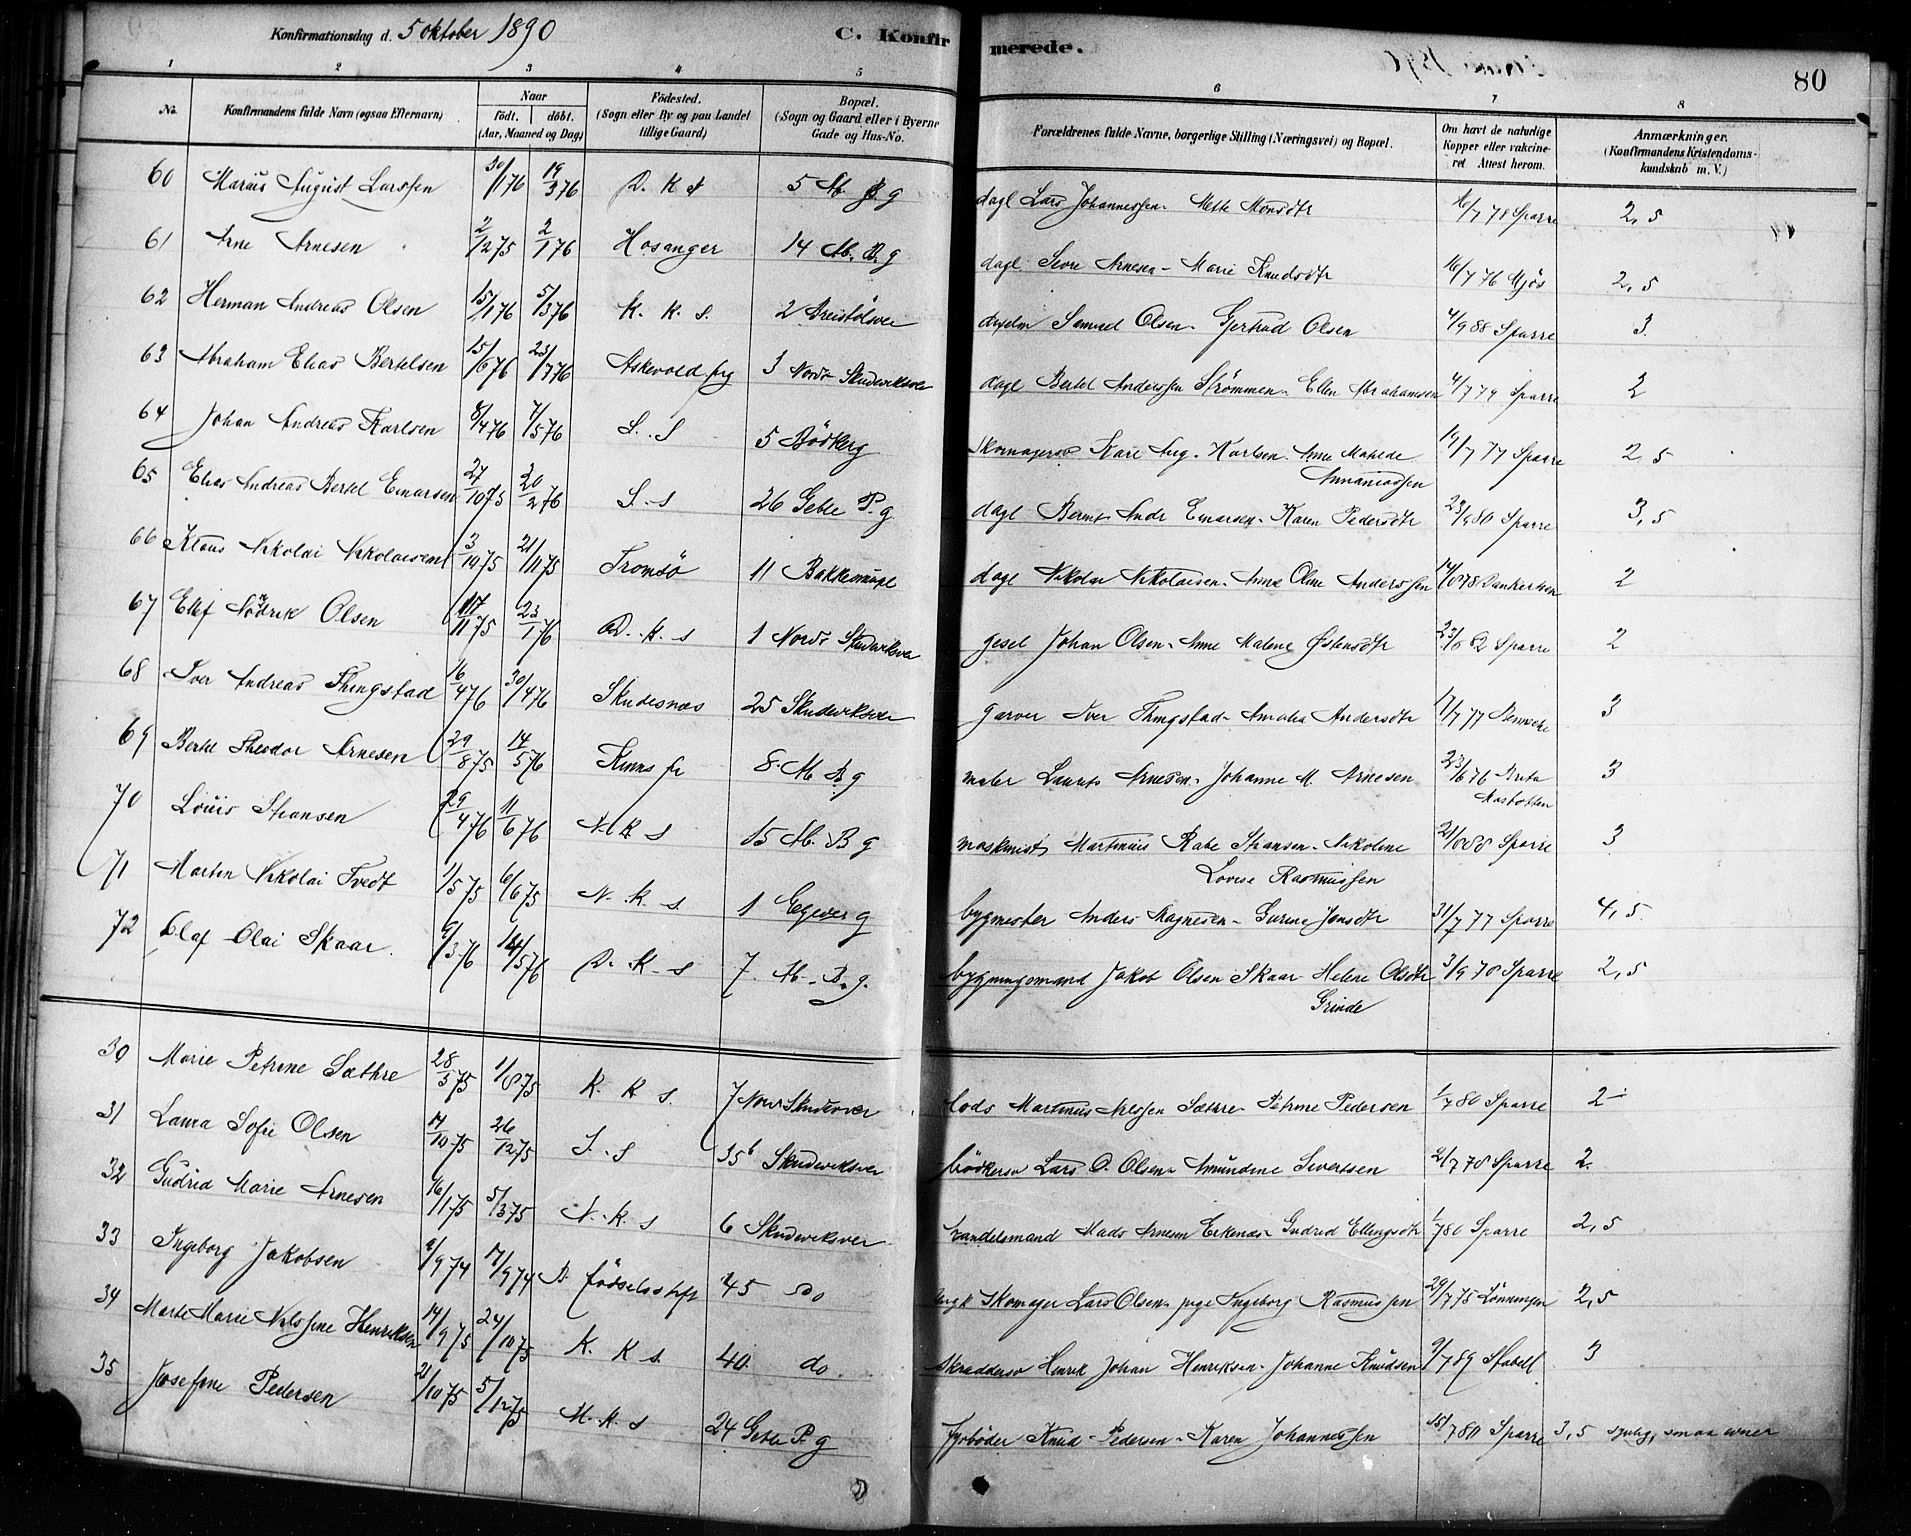 Konfirmationsdag d. 5 oktober 1890 C. Konfirmerede. 80
1 2 3 4 5 6 7 8
No. Konfirmandens fulde Navn (ogsaa Efternavn) Naar födt. döbt. (Aar, Maaned og Dag) Födested. (Sogn eller By og paa Landet tillige Gaard) Bopæl. (Sogn og Gaard eller i Byerne Gade og Hus-No. Forældrenes fulde Navne, borgerlige Stilling (Næringsvei) og Bopæl. Om havt de naturlige Kopper eller vakcineret. Attest herom. Anmærkninger. (Konfirmandens Kristendomskundskab m. V.)
60 Marius August Larssen 30/1 76 19/3 76 D. K s 5 M B g dagl Lars Johannessen - Mette Monsdtr 16/7 78 Sparre 2,5
61 Arne Arnesen 2/12 75 2/1 76 Hosanger 14 M. B. g dagl Arnesen - Marie Knudsdtr 16/7 76 Gjös 2,5
62 Herman Andreas Olsen 15/1 76 5/3 76 K. K. s. 2 Samuel Olsen - Gjertrud Olsen 4/9 88 Sparre 3.
63 Abraham Elias Bertelsen 15/6 76 23/7 76 Askevold 3 Nordr Skudeviksver dagl Bertel Anderssen Strömmen - Ellen Abrahamsen 4/7 79 Sparre 2
64 Johan Andreas Karlsen 8/4 76 7/5 76 S. S 5 Bödkerg Karl Aug. Karlsen - Anne Malede Annaniassen 19/7 77 Sparre 2,5
65 Elias Andreas Bertel Einarsen 27/10 75 20/2 76 S. s 26 Geble P. g dagl Bernt Andr Einarsen - Karen Pedersdtr 23/9 80 Sparre 3,5
66 Klaus Nikolai Nikolaisen 3/10 75 21/11 75 Tromsö 11 Bakkesmuge dagl Nikolai Nikolaisen - Anne Oline Anderssen Dankertsen 2
67 Ellef Olsen 17/11 75 23/1 76 D. K. s 1 Nordr Skudeviksver gesel Johan Olsen - Anne Malene Østensdtr Sparre 2
68 Iver Andreas Thingstad 16/4 76 30/4 76 Skudesnæs 25 Skudeviksver garver Iver Thingstad - Amalia Andersdtr 17/7 77 3
69 Bertel Theodor Arnesen 29/8 75 14/5 76 Kinns 8. M B g maler Laurits Arnesen - Johanne M. Arnesen 23/6 76 3
70 Louis Stransen 29/4 76 11/6 76 N. K s 15 M. B g maskinist Martinius Rabe Stransen - Nikoline Lovise Rasmussen Sparre 3
71 Morten Nikolai Tvedt 1/5 75 6/6 75 N. K. s. 1 g bygmester Anders Magnesen - Gurine Jonsdtr 31/7 77 Sparre 4,5.
72 Olaf Olai Skaar. 6/3 76 14/5 76 D. K. s 7. M. B. g. bygningsmand Jakob Olsen Skaar Helene Olsdtr Grinde 3/9 78 Sparre 2,5
30 Marie Petrine Sæthre 28/3 75 1/8 75 K. K s. 7 Nord Skudever lods Martinus Nilssen Sæthre - Petrine Pedersen 1/7 80 Sparre 2
31 Laura Sofie Olsen 17/10 75 26/12 75 S. S 35b Skudeviksver bödkersv Lars O. Olsen - Amundine Sivertsen 2/7 78 Sparre 2.
32 Gudrid Marie Arnesen 16/1 75 5/3 75 N. K. s 6 Skudeviksver handelsmand Mads Arnesen Eikenæs - Gudrid Ellingsdtr 1/7 80 Sparre 2,5
33 Ingeborg Jakobsen 6/9 74 17/9 74 B födselsstift 45 do Skomager Lars Olsen - pige Ingeborg Rasmussen 29/7 75 Lönningen 2,5
34 Marte Marie Nilssine Henriksen 14/9 75 24/10 75 K. K s. 40. do. skreddersv Henrik Johan Henriksen - Johanne Knudsen 9/7 89 Stabell 3
35 Josefine Pedersen 21/10 75 5/12 75 M. K s 24 Geble P. g fyrböder Knud Pedersen - Karen Johannessen 15/7 80 Sparre 3,5 smaa evner